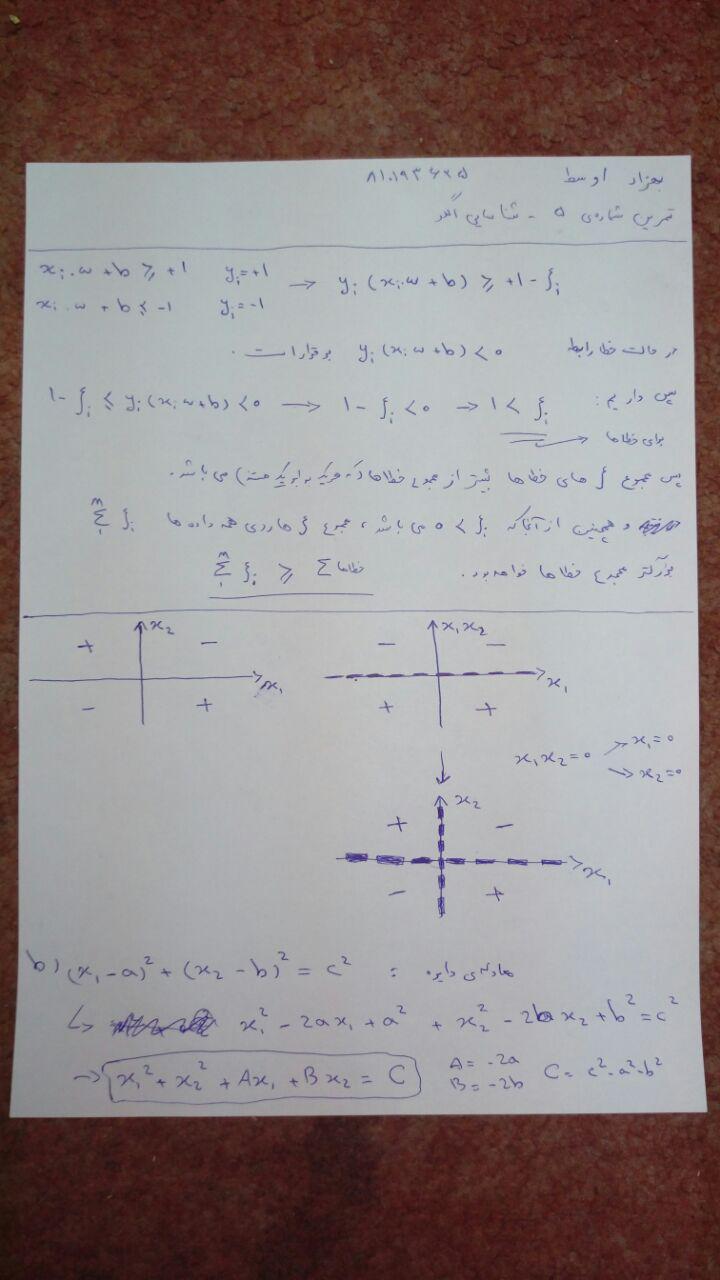 بهزاد اوسط ۸۱۰۱۹۳۶۲۵
تمرین شماره‌ی ۵ - شناسایی الگو
xᵢ.w + b ≥ +1 yᵢ=+1 → yᵢ (xᵢ.w + b) ≥ +1-ξᵢ
xᵢ.w + b ≤ -1 yᵢ=-1
در حالت خطا رابطه yᵢ (xᵢ.w + b) < 0 برقرار است.
پس داریم: 1-ξᵢ ≤ yᵢ(xᵢ.w+b) < 0 → 1-ξᵢ < 0 → 1 < ξᵢ
برای خطاها
پس مجموع ξ های خطاها بیشتر از مجموع خطاها (که هریک برابر یک هستند) می باشد.
و همچنین از آنجا که ξᵢ > 0 می باشد، مجموع ξ ها روی همه داده ها Σᵐ ξᵢ
بزرگتر مجموع خطاها خواهد بود. Σᵐ ξᵢ ≥ Σ خطاها
x₂ x₁x₂
+ - - -
x₁ x₁
- + + +
x₁x₂=0 x₁=0
x₂=0
x₂
+ -
x₁
- +
b) (x₁-a)² + (x₂-b)² = c² : معادله‌ی دایره
↳ x₁² - 2ax₁ + a² + x₂² - 2bx₂ + b² = c²
→ x₁² + x₂² + Ax₁ + Bx₂ = C A = -2a B = -2b C = c²-a²-b²